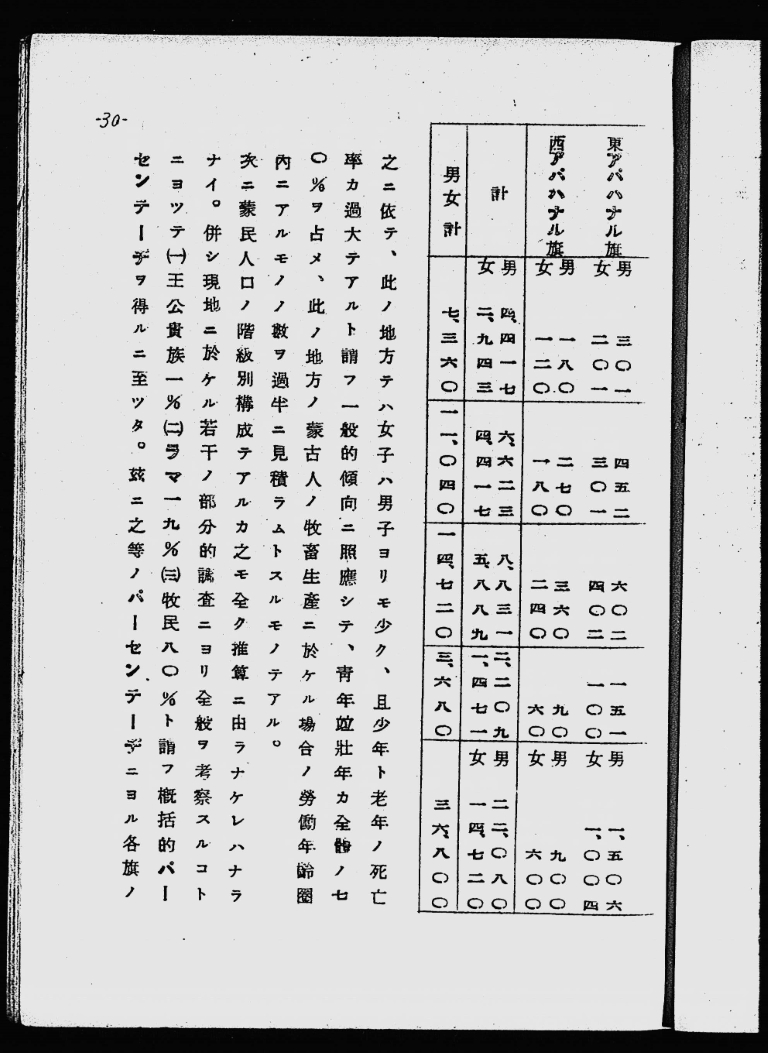 -30-
東アパハナル旗 男 三〇一 四五二 六〇二 一五一 男 一、五〇六
女 二〇一 三〇一 四〇二 一〇〇 女 一、〇〇四
西アパハナル旗 男 一八〇 二七〇 三六〇 九〇 男 九〇〇
女 一二〇 一八〇 二四〇 六〇 女 六〇〇
計 男 四、四一七 六、六二三 八、八三一 二、二〇九 男 二二、〇八〇
女 二、九四三 四、四一七 五、八八九 一、四七一 女 一四、七二〇
男女計 七、三六〇 一一、〇四〇 一四、七二〇 三、六八〇 三六、八〇〇
之ニ依テ、此ノ地方テハ女子ハ男子ヨリモ少ク、且少年ト老年ノ死亡
率カ過大テアルト謂フ一般的傾向ニ照應シテ、靑年竝壯年カ全體ノ七
〇%ヲ占メ、此ノ地方ノ蒙古人ノ牧畜生產ニ於ケル場合ノ勞働年齡圈
內ニアルモノノ數ヲ過半ニ見積ラムトスルモノテアル。
次ニ蒙民人口ノ階級別構成テアルカ之モ全ク推算ニ由ラナケレハナラ
ナイ。併シ現地ニ於ケル若干ノ部分的調查ニヨリ全般ヲ考察スルコト
ニヨツテ㈠王公貴族一%㈡ラマ一九%㈢牧民八〇%ト謂フ槪括的パー
センテーヂヲ得ルニ至ツタ。玆ニ之等ノパーセンテーヂニヨル各旗ノ